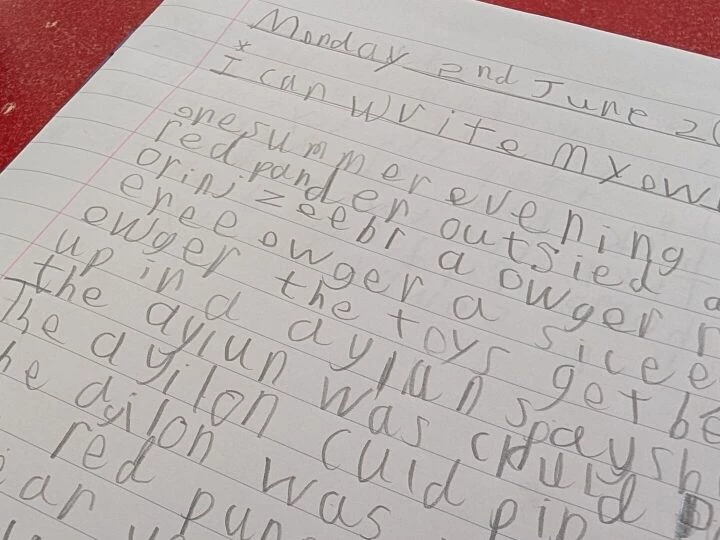 Monday 2nd June 20
I can write my own
one summer evening
red pander outsied a
orinj zeebr a owger
eree owger a sicee
owger the toys get be
up in a aylan spaysh
the aylun was
The ayilon culd pin
he ayilon was
red pun